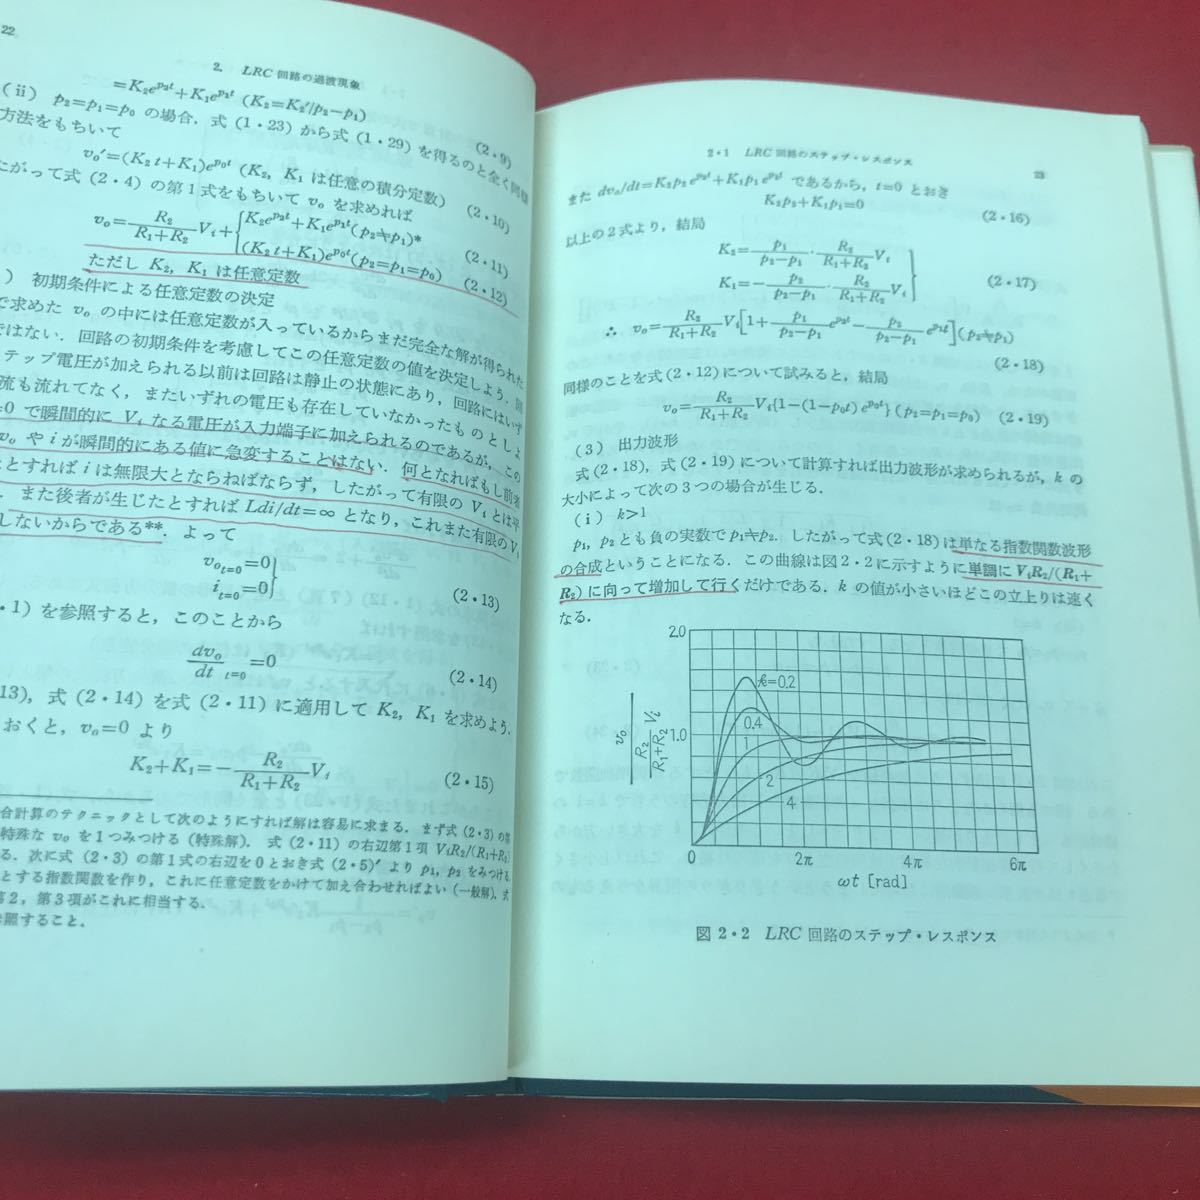 22
2. LRC 回路の過渡現象
=K₂e^{p₂t}+K₁e^{p₁t} (K₂=K₂′/p₂−p₁) (2・9)
(ii) p₂=p₁=p₀ の場合,式 (1・23) から式 (1・29) を得るのと全く同様
方法をもちいて
v₀′=(K₂t+K₁)e^{p₀t} (K₂, K₁ は任意の積分定数) (2・10)
たがって式 (2・4) の第1式をもちいて v₀ を求めれば
v₀=R₂/(R₁+R₂) Vᵢ+{K₂e^{p₂t}+K₁e^{p₁t}(p₂≠p₁)* (2・11)
(K₂t+K₁)e^{p₀t}(p₂=p₁=p₀) (2・12)
ただし K₂, K₁ は任意定数
) 初期条件による任意定数の決定
で求めた v₀ の中には任意定数が入っているからまだ完全な解が得られた
ではない.回路の初期条件を考慮してこの任意定数の値を決定しよう.
テップ電圧が加えられる以前は回路は静止の状態にあり,回路にはいず
流も流れてなく,またいずれの電圧も存在していなかったものとしよ
=0 で瞬間的に Vᵢ なる電圧が入力端子に加えられるのであるが,この
v₀ や i が瞬間的にある値に急変することはない.何となればもし前者
とすれば i は無限大とならねばならず,したがって有限の Vᵢ とは平
.また後者が生じたとすれば Ldi/dt=∞ となり,これまた有限の Vᵢ
しないからである**.よって
v₀ₜ₌₀=0
iₜ₌₀=0} (2・13)
・1) を参照すると,このことから
dv₀/dt ₜ₌₀=0 (2・14)
13),式 (2・14) を式 (2・11) に適用して K₂, K₁ を求めよう.
おくと,v₀=0 より
K₂+K₁=−R₂/(R₁+R₂) Vᵢ (2・15)
合計算のテクニックとして次のようにすれば解は容易に求まる.まず式 (2・3) の
特殊な v₀ を1つみつける (特殊解).式 (2・11) の右辺第1項 VᵢR₂/(R₁+R₂)
る.次に式 (2・3) の第1式の右辺を0とおき式 (2・5)′ より p₁, p₂ をみつける
とする指数関数を作り,これに任意定数をかけて加え合わせればよい (一般解).式
第2,第3項がこれに相当する.
参照すること.
2・1 LRC 回路のステップ・レスポンス 23
また dv₀/dt=K₂p₂e^{p₂t}+K₁p₁e^{p₁t} であるから,t=0 とおき
K₂p₂+K₁p₁=0 (2・16)
以上の2式より,結局
K₂=p₁/(p₂−p₁)・R₂/(R₁+R₂) Vᵢ
K₁=−p₂/(p₂−p₁)・R₂/(R₁+R₂) Vᵢ} (2・17)
∴ v₀=R₂/(R₁+R₂) Vᵢ[1+p₁/(p₂−p₁) e^{p₂t}−p₂/(p₂−p₁) e^{p₁t}](p₂≠p₁)
(2・18)
同様のことを式 (2・12) について試みると,結局
v₀=R₂/(R₁+R₂) Vᵢ{1−(1−p₀t) e^{p₀t}} (p₁=p₂=p₀) (2・19)
(3) 出力波形
式 (2・18),式 (2・19) について計算すれば出力波形が求められるが,k の
大小によって次の3つの場合が生じる.
(i) k>1
p₁, p₂ とも負の実数で p₁≠p₂.したがって式 (2・18) は単なる指数関数波形
の合成ということになる.この曲線は図2・2に示すように単調に VᵢR₂/(R₁+
R₂) に向って増加して行くだけである.k の値が小さいほどこの立上りは速く
なる.
2.0
k=0.2
0.4
1.0
1
2
4
v₀/(R₂/(R₁+R₂) Vᵢ)
0 2π 4π 6π
ωt [rad]
図 2・2 LRC 回路のステップ・レスポンス